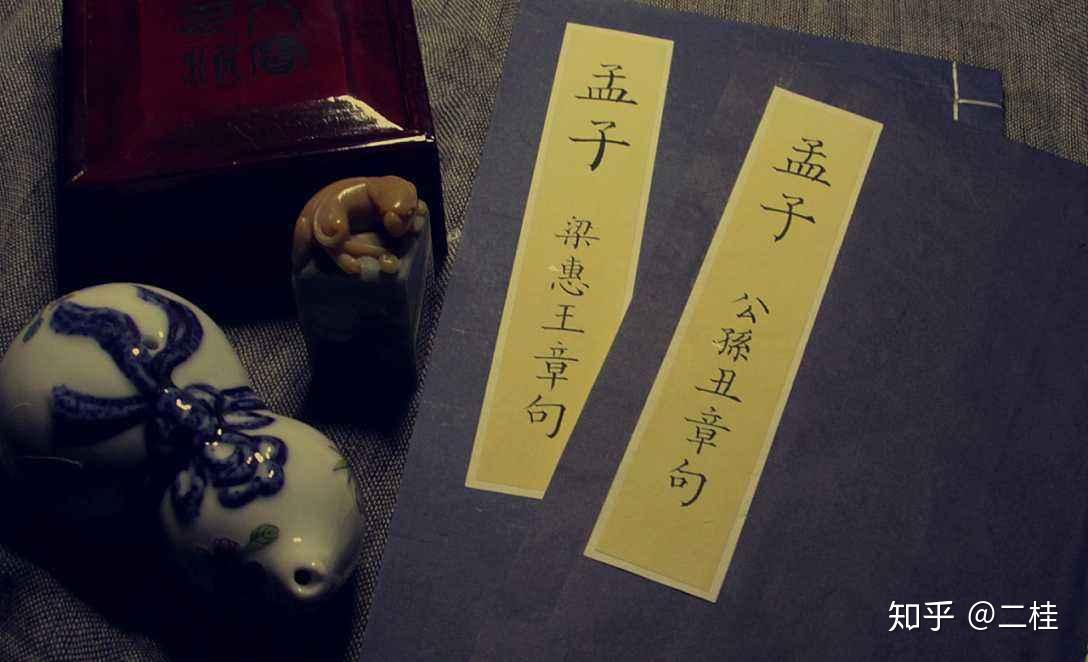 孟子
梁惠王章句
孟子
公孫丑章句
知乎 @二桂